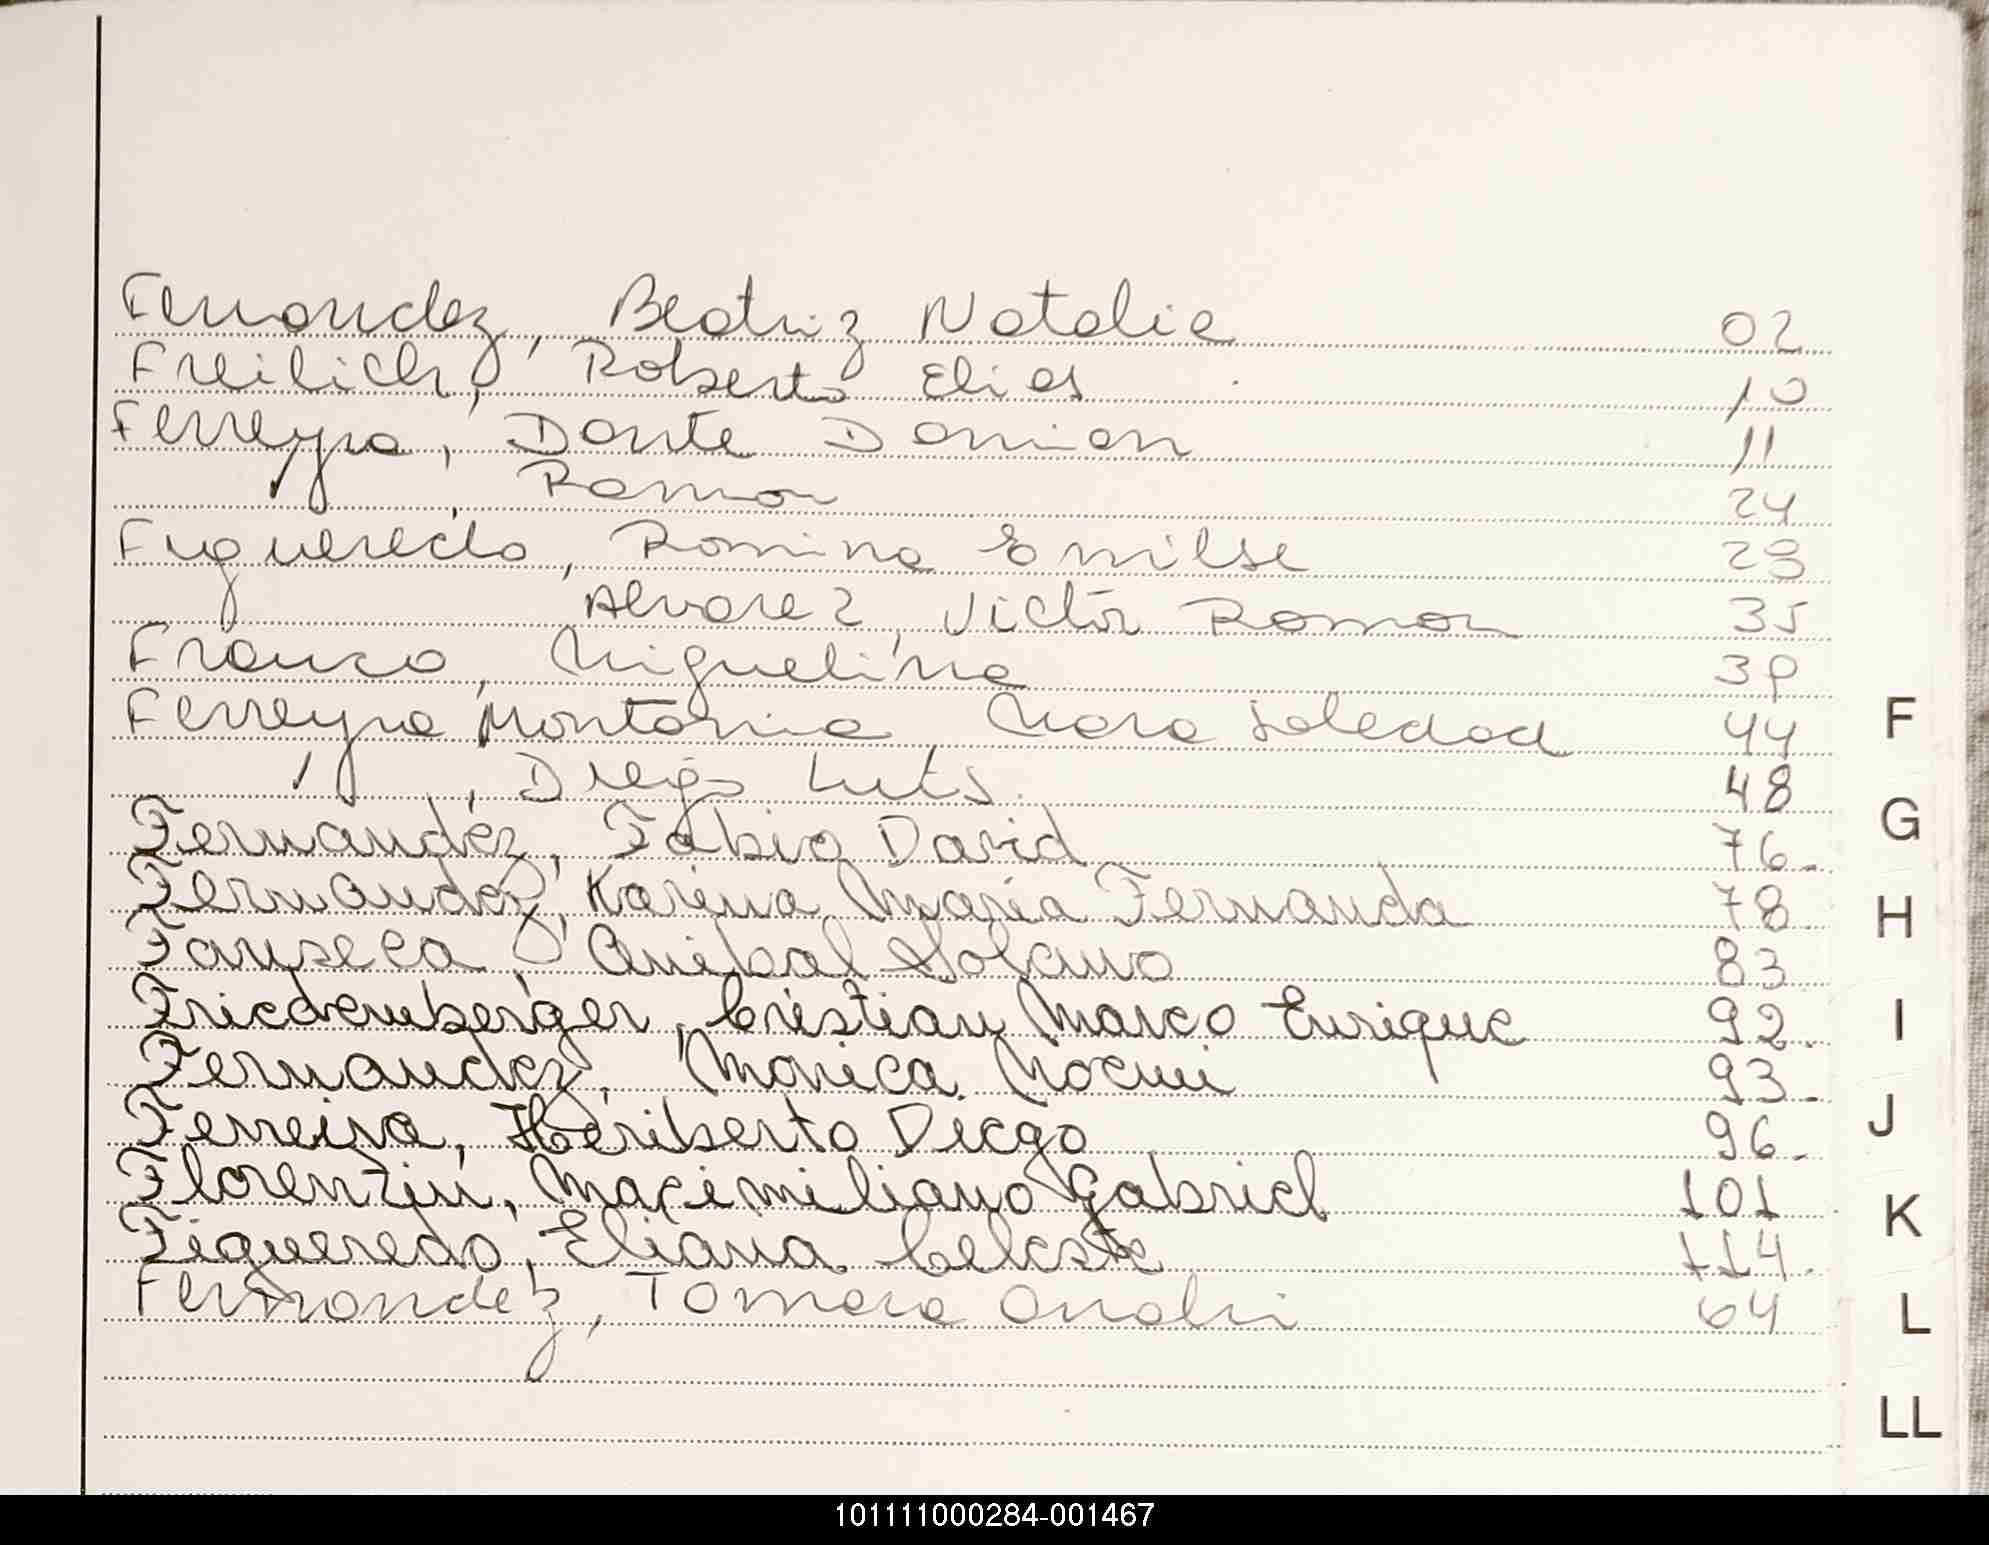 Fernandez, Beatriz Natalia 02
Freilich, Roberto Elias 10
Ferreyra, Dante Damian 11
, Ramon 24
Figueredo, Romina Emilse 29
Alvarez, Victor Ramon 35
Franco, Miguelina 39
Ferreyra Montania, Mara Soledad 44
, Diego Luis. 48
Fernandez, Fabio David 76.
Fernandez, Karina Maria Fernanda 78.
Fanseca, Anibal Solano 83
Friedemberger, Cristian Marco Enrique 92.
Fernandez, Monica Noemi 93.
Ferreira, Heriberto Diego 96.
Florenzin, Maximiliano Gabriel 101.
Figueredo, Eliana Celeste 114.
Fernandez, Tamara Anahi 64
F
G
H
I
J
K
L
LL
101111000284-001467